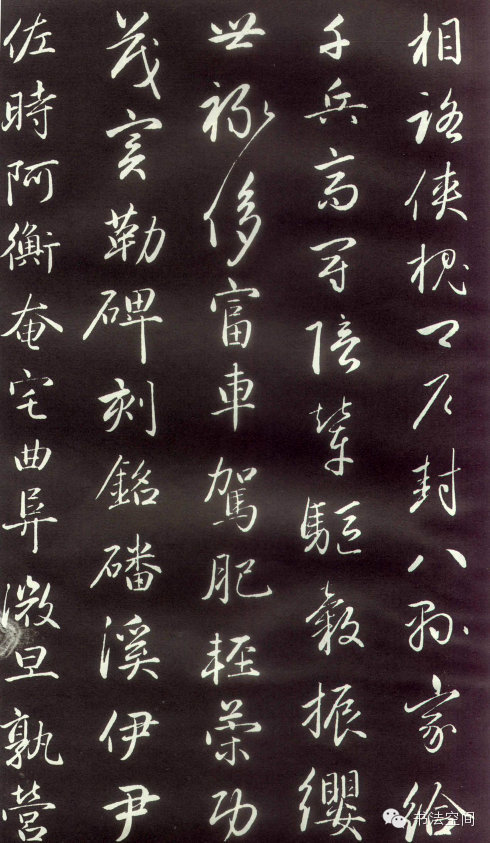 相路俠槐卿戶封八縣家給
千兵高冠陪輦驅轂振纓
世祿侈富車駕肥輕策功
茂實勒碑刻銘磻溪伊尹
佐時阿衡奄宅曲阜微旦孰營
书法空间